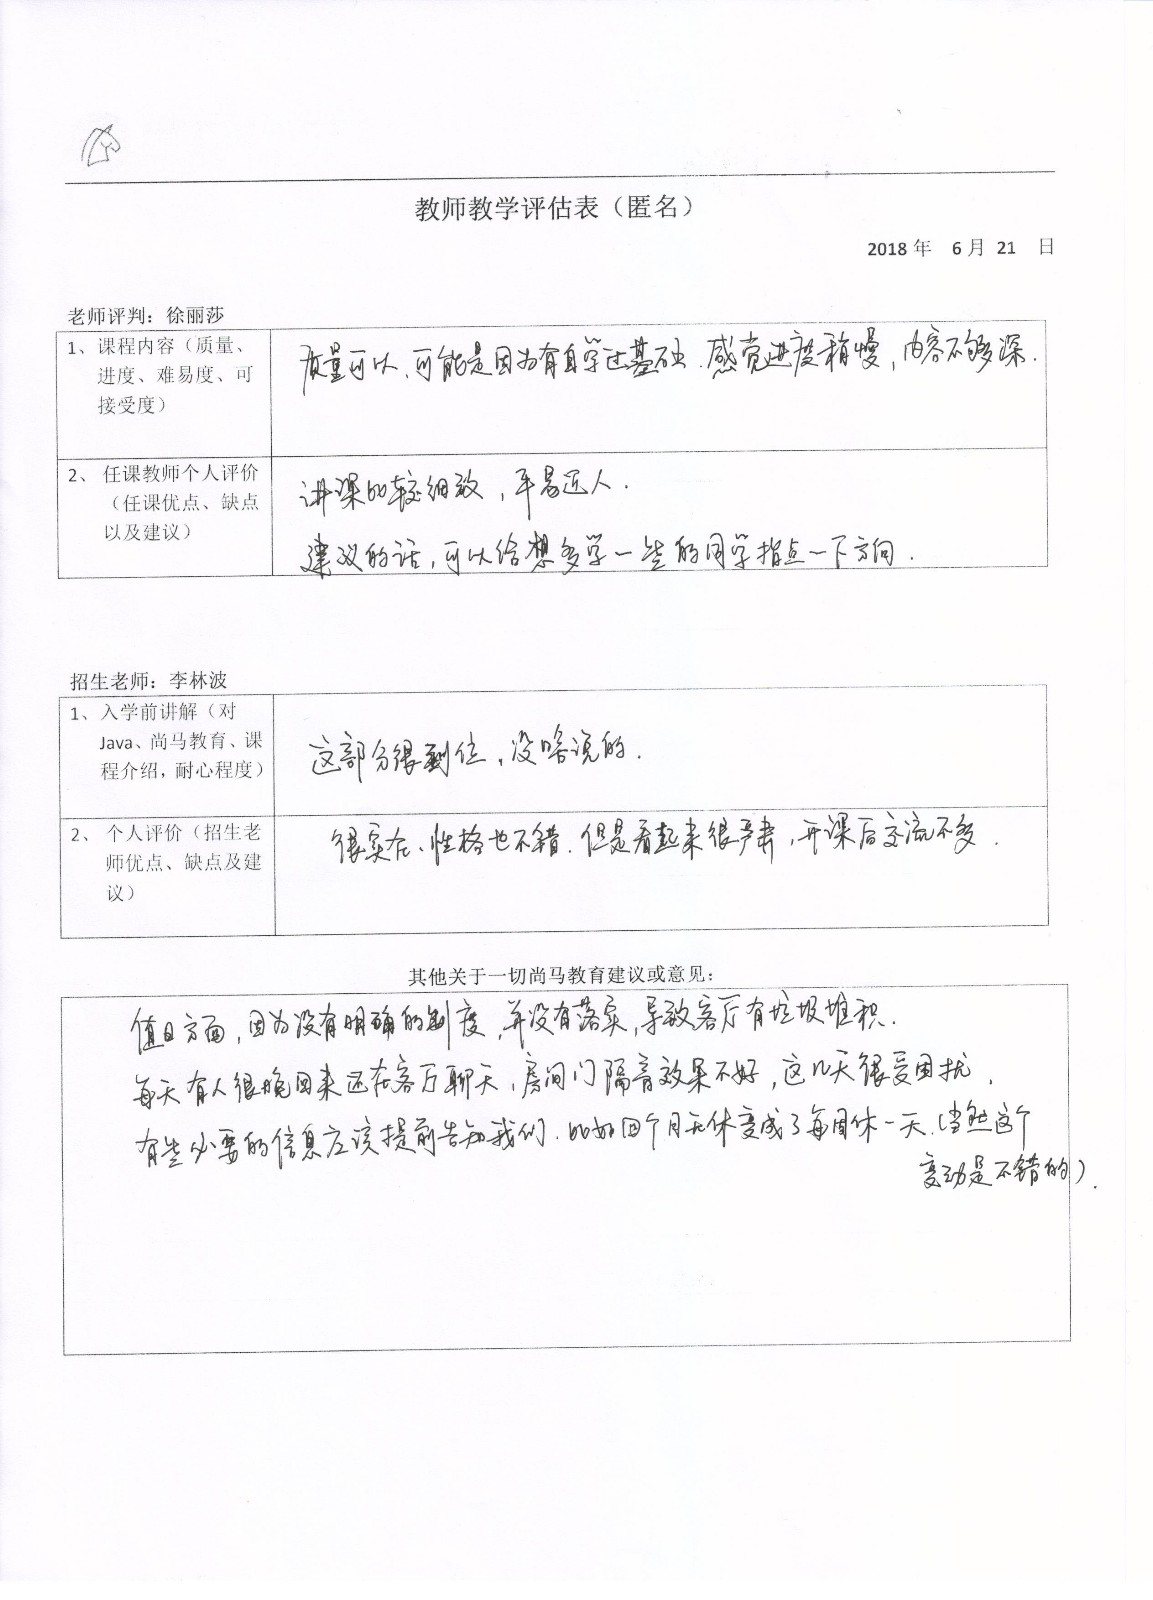 教师教学评估表（匿名）
2018 年 6 月 21 日
老师评判：徐丽莎
1、课程内容（质量、
进度、难易度、可
接受度）
质量可以，可能是因为有自学过基础．感觉进度稍慢，内容不够深．
2、任课教师个人评价
（任课优点、缺点
以及建议）
讲课比较细致，平易近人．
建议的话，可以给想多学一些的同学指点一下方向．
招生老师：李林波
1、入学前讲解（对
Java、尚马教育、课
程介绍，耐心程度）
这部分很到位，没啥说的．
2、个人评价（招生老
师优点、缺点及建
议）
很实在、性格也不错．但是看起来很严肃，开课后交流不多．
其他关于一切尚马教育建议或意见：
值日方面，因为没有明确的制度，并没有落实，导致客厅有垃圾堆积．
每天有人很晚回来还在客厅聊天，房间门隔音效果不好，这几天很受困扰．
有些必要的信息应该提前告知我们．比如四个月无休变成了每周休一天．（当然这个
变动是不错的）．